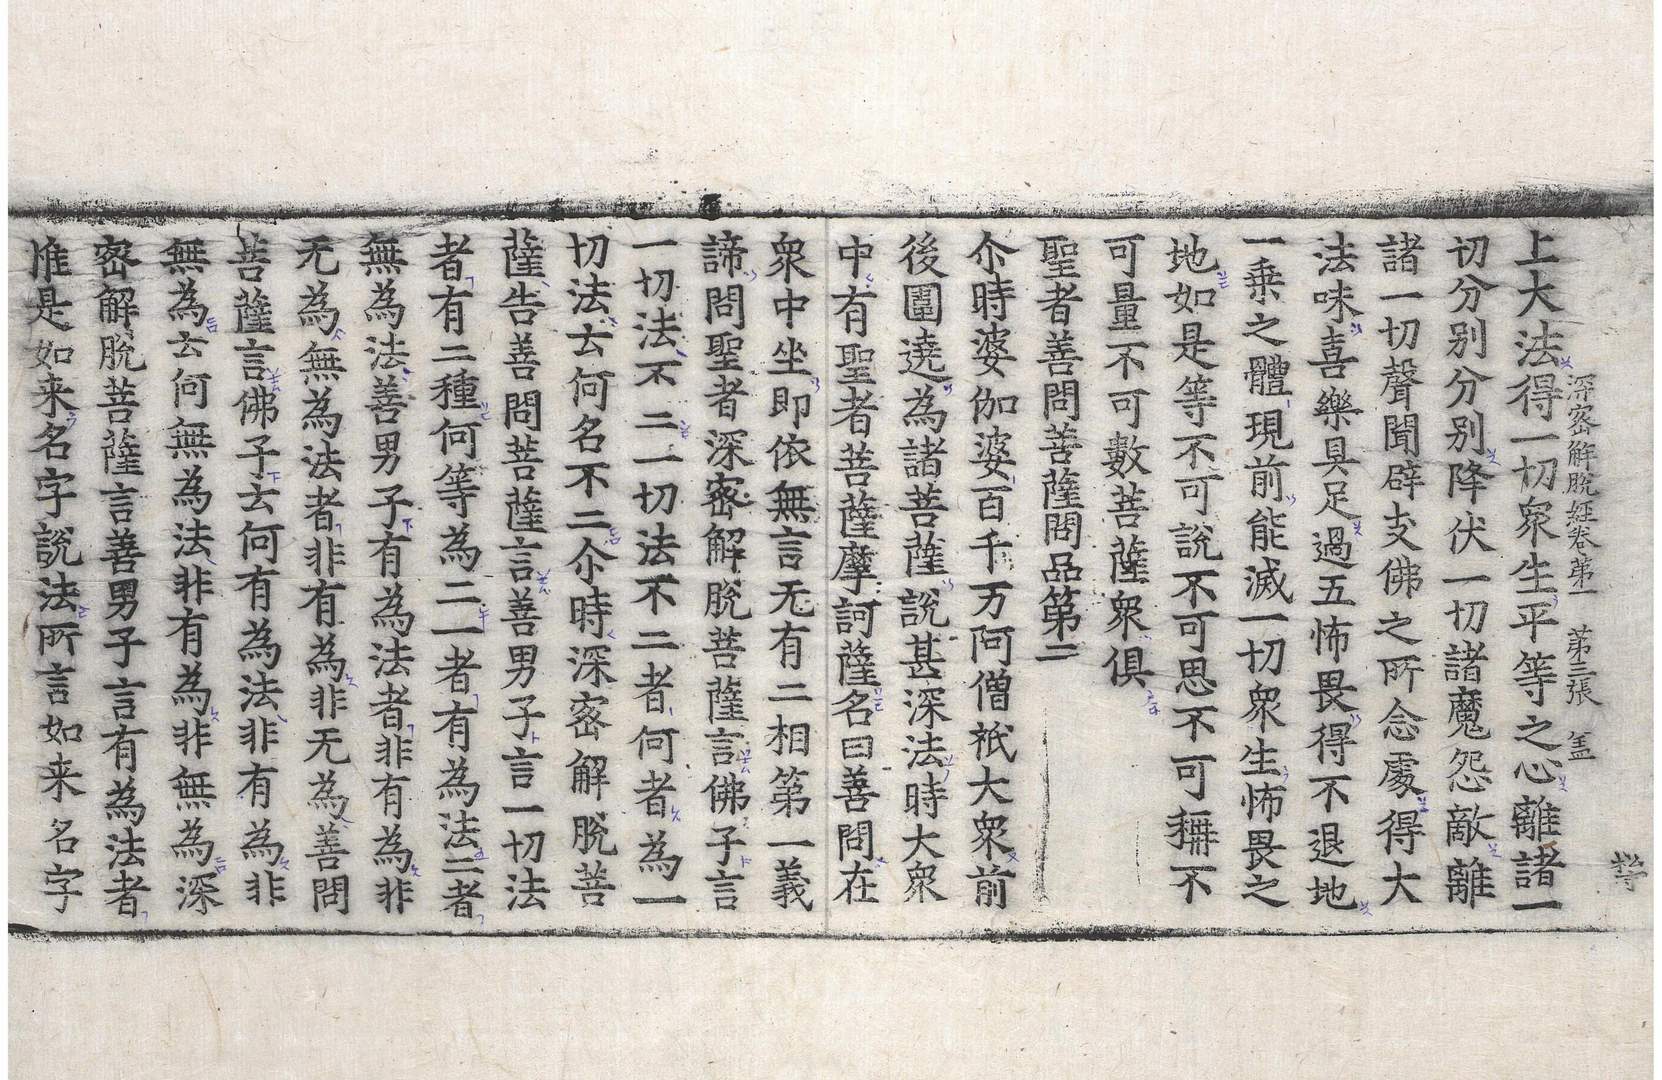 深密解脱經卷第一　第三張　盖
上大法得一切衆生平等之心離諸一
切分别分别降伏一切諸魔怨敵離
諸一切聲聞辟支佛之所念處得大
法味喜樂具足過五怖畏得不退地
一乗之體現前能滅一切衆生怖畏之
地如是等不可說不可思不可稱不
可量不可數菩薩衆俱
聖者善問菩薩問品第二
尒時婆伽婆百千万阿僧祇大衆前
後圍遶為諸菩薩說甚深法時大衆
中有聖者菩薩摩訶薩名曰善問在
衆中坐即依無言无有二相第一義
諦問聖者深密解脱菩薩言佛子言
一切法不二一切法不二者何者為一
切法云何名不二尒時深密解脱菩
薩告善問菩薩言善男子言一切法
者有二種何等為二一者有為法二者
無為法善男子有為法者非有為非
无為無為法者非有為非无為善問
菩薩言佛子云何有為法非有為非
無為云何無為法非有為非無為深
密解脱菩薩言善男子言有為法者
惟是如来名字說法所言如来名字